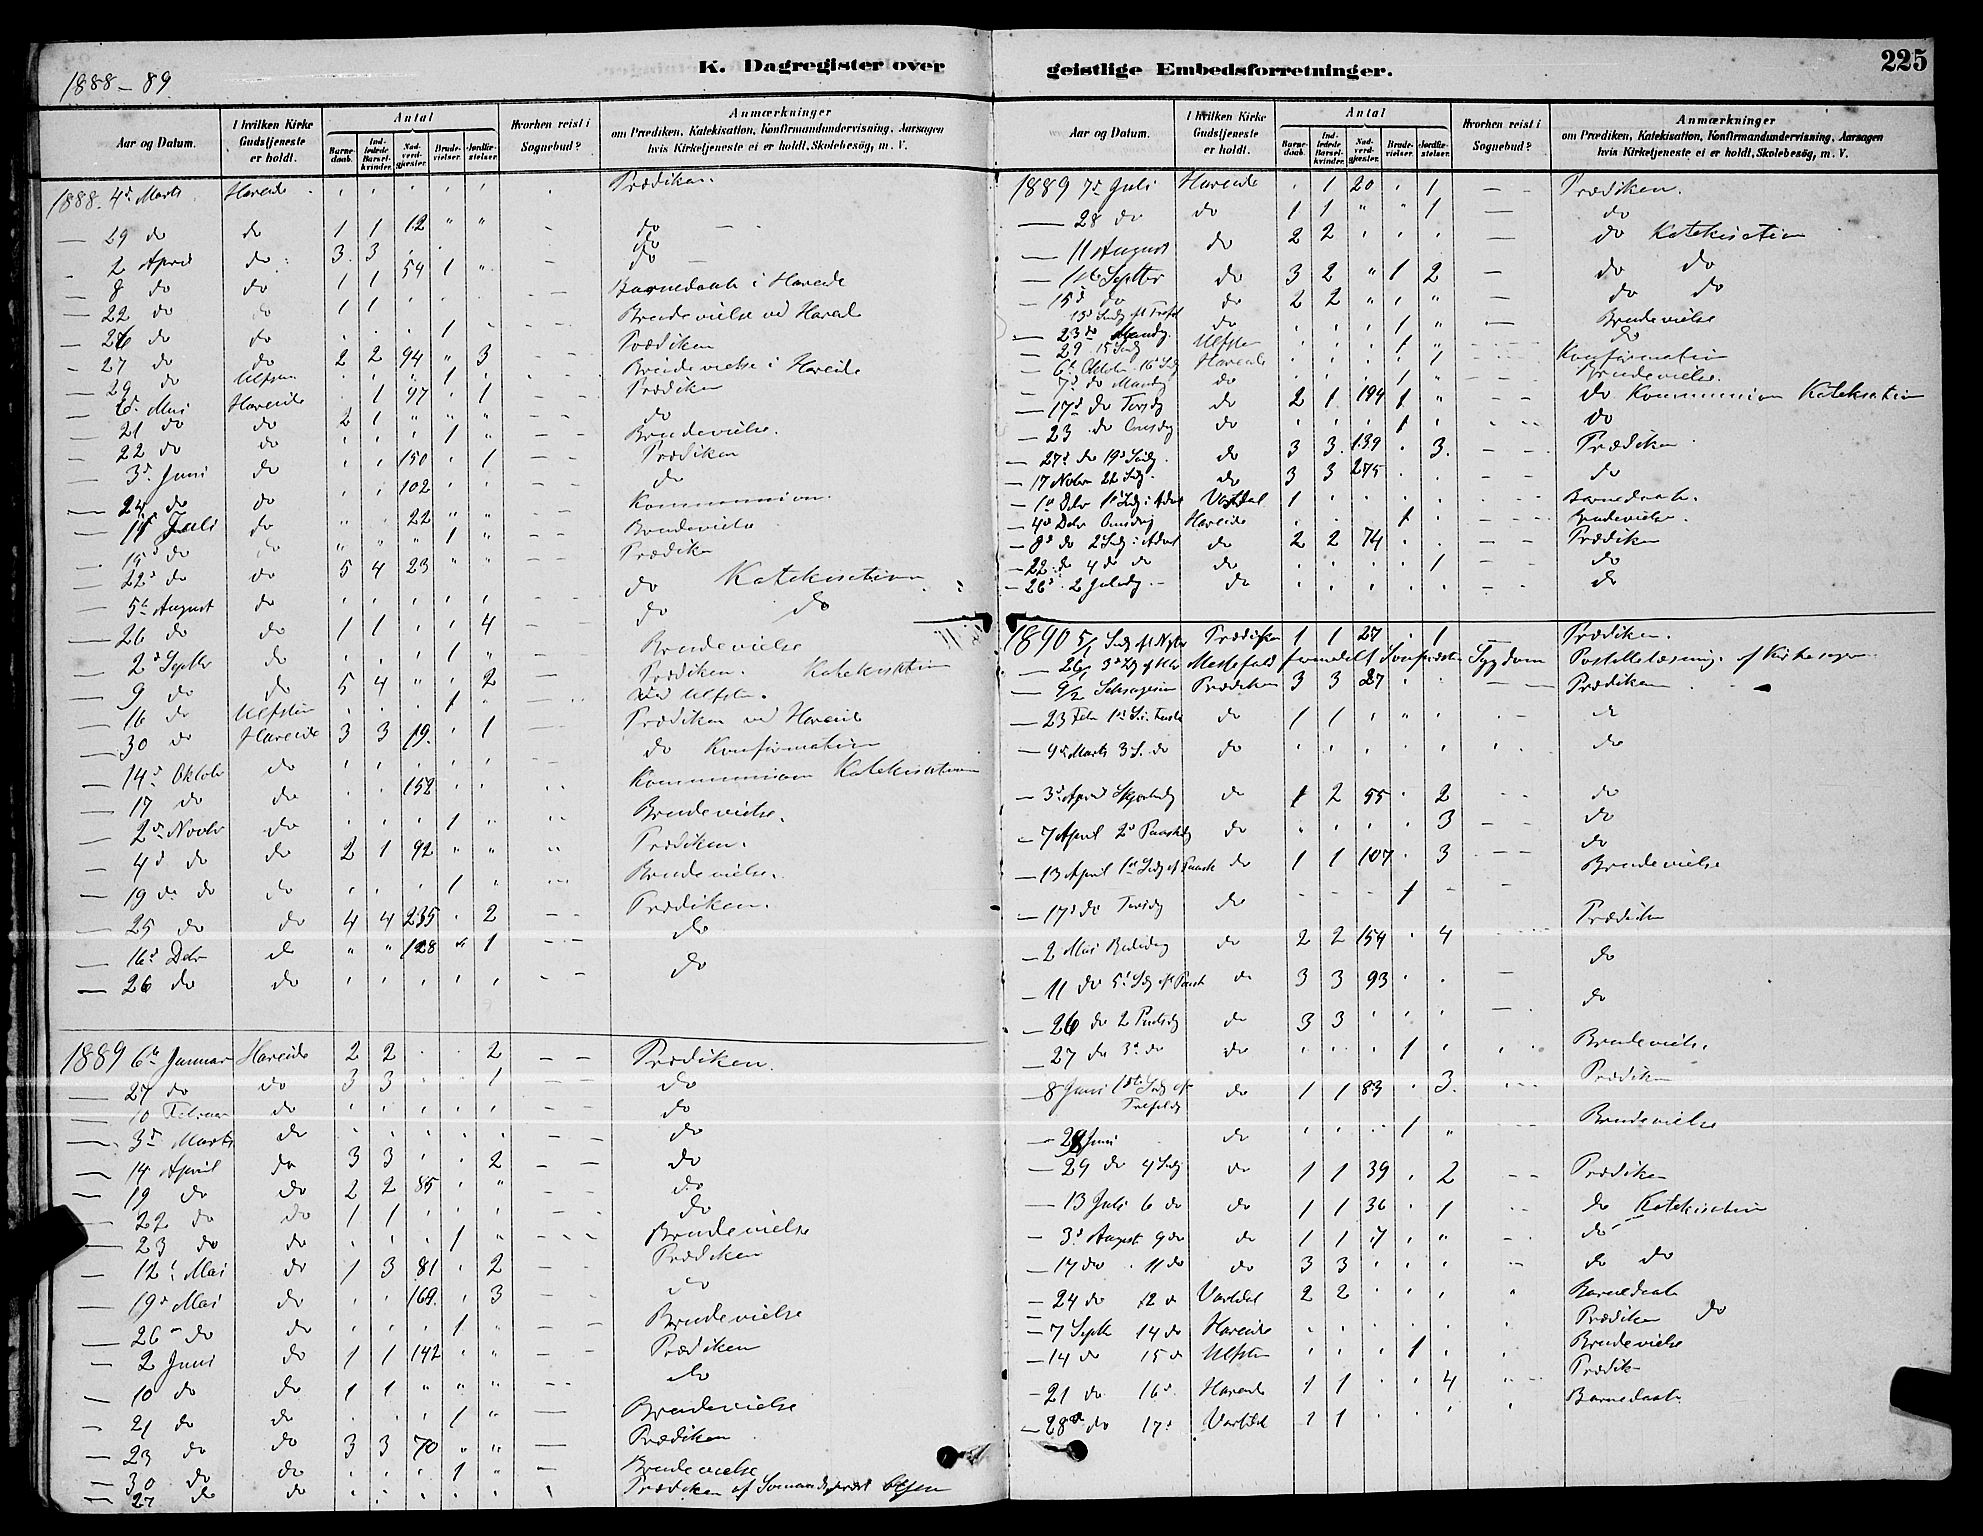 1888-89
K. Dagregister over
Aar og Datum.
I hvilken Kirke Gudstjeneste er holdt.
Antal
Barnedaab.
Indledede Barselkvinder.
Nadverdgjester.
Brudevielser.
Jordfæstelser.
Hvorhen reist i Sognebud?
Anmærkninger
om Prædiken, Katekisation, Konfirmandundervisning, Aarsagen
hvis Kirketjeneste ei er holdt, Skolebesög, m. V.
1888. 4d Marts Hareide " " " " " Prædiken.
— 29 do do 1 1 12 " " do
- 2 April do 3 3 do
- 8 do do 1 1 54 1 " do
— 22 do do 1 1 Barnedaab i Hareide
— 26 do do 1 " Brudevielse ved Hareide
— 27 do do 2 2 94 " 3 Prædiken
— 29 do Ulfsten 1 Brudevielse i Hareide
— 6d Mai Hareide 1 97 1 Prædiken
— 21 do do 2 1 " " " do
— 22 do do 1 " Brudevielse.
— 3d Juni do 150 1 Prædiken
— 24 do do 102 do
— 11 Juli do " 22 " " Kommunion.
— 15d do do " " " 1 " Brudevielse
— 22d do do 5 4 23 " " Prædiken
— 5te August do do Katekisation
— 26 do do 1 1 4 do do
— 2d Septbr do 1 " Brudevielse
— 9 do do 5 4 " 2 Prædiken. Katekisation
— 16 do Ulfsten 1 ved Ulfsten.
— 30 do Hareide 3 3 19. 1 Prædiken ved Hareide
— 14d Oktobr do do Konfirmation
— 17 do do 158 Kommunion Katekisation
— 2d Novbr do 1 " Brudevielse.
— 4d do do 2 1 92 " " Prædiken.
— 19 do do do 1 " Brudevielse.
— 25 do do 4 4 235 2 Prædiken.
— 16d Debr do " " 128 " 1 do
— 26 do do do
1889 6te Januar Hareide 2 2 2 Prædiken.
— 27 do do 3 3 1 do
— 10 Februar do do
— 3d Marts do do
— 14 April do 3 3 2 do
— 19 do do 2 2 85 " do
— 22 do do 1 1 do
— 23 do do 1 " Brudevielse
— 12te Mai do 1 3 81 2 Prædiken
— 19d Mai do 169. 3 do
— 26 do do 1 " Brudevielse
— 2 Juni do 1 1 142 " " Prædiken
— 10 do do 1 1 " " " do
— 21 do do 1 " Brudevielse
— 23 do do 3 3 70 " " Prædiken
— 30 do do 1 " Brudevielse
— 27 do do Prædiken af
geistlige Embedsforretninger.
225
Aar og Datum.
I hvilken Kirke Gudstjeneste er holdt.
Antal
Barnedaab.
Indledede Barselkvinder.
Nadverdgjester.
Brudevielser.
Jordfæstelser.
Hvorhen reist i Sognebud?
Anmærkninger
om Prædiken, Katekisation, Konfirmandundervisning, Aarsagen
hvis Kirketjeneste ei er holdt, Skolebesög, m. V.
1889 7d Juli Hareide 1 20 1 — Prædiken.
— 28 do do 1 1 " " 1 — do
— 11 August do 2 2 — do Katekisation
— 1ste Septbr do 3 2 " 1 2 — do do
— 15d do do 2 2 " " — do do
— 23 do Mandg. do 1 " — Brudevielse
— 29 15 Sndg Ulfsten 1 " do
— 6te Oktobr. 16 Sndg Hareide 1 Konfirmation
— 7d do Mandg do 1 " Brudevielse.
— 17d do Torsdg do 2 1 194 1 " do Kommunion Katekisation
— 23 do Onsdg do 1 do
— 27d do 19d Sndg. do 3 3. 139 3. Prædiken
— 17 Novbr 22 Sdg. do 3 3 275 do
— 1ste Debr 1ste Sdg i Advt Vartdal 1 Barnedaab.
— 4d Debr Onsdag Hareide 1 Brudevielse.
— 8d do 2 Sdg i Advt do 2 2 74 Prædiken
— 22. do 4 do do do 1 do
— 26d 2 Juledg. - do do
1890 5/1 Sndg eft Nytår Prædiken 1 1 27 1 Prædiken.
— 26/1 Messefald Sygdom Postillelæsning af Kirkesanger
— 9/2 Seksagesima Prædiken 3 3 27 Prædiken
— 23 Febr 1ste S. i Faste do 1 1 " do
— 9de Marts 3 S. do do do
— 3d April Skjærtdg do 1 2 55 2 do
— 7 April 2d Paaskedg do 3 do
— 13 April 1ste Sndg ef Paask do 1 1 107 3 do
— 17d do Torsdg do 1 Brudevielse
— 2 Mai Bededag do 2 2 154 4 Prædiken
— 11 do 5te Sdg eft Paask do 3 3 93 do
— 26 do 2 Pintsdg do 3 3 do
— 27 do 3d do do 1 Brudevielse.
— 8 Juni 1ste Sndg eft Trefoldg do 1 1 83 3. Prædiken
— 28 Juni do 1 " Brudevielse
— 29 do 4 Sdg do 1 1 39 2 Prædiken
— 13 Juli 6 do do 1 1 36 1 do Katekisation
— 3d August 9 do do 1 1 7 " do
— 17 do 11 do do 3 3 do do
— 24 do 12 do Vartdal 2 2 Barnedaab
— 7 Septb 14 do Hareide Prædiken do
— 14 do 15 do Ulfsten 1 Brudevielse
— 21 do 16d Hareide 1 1 4 Prædik
— 28 do 17d Vartdal 1 1 Barnedaab